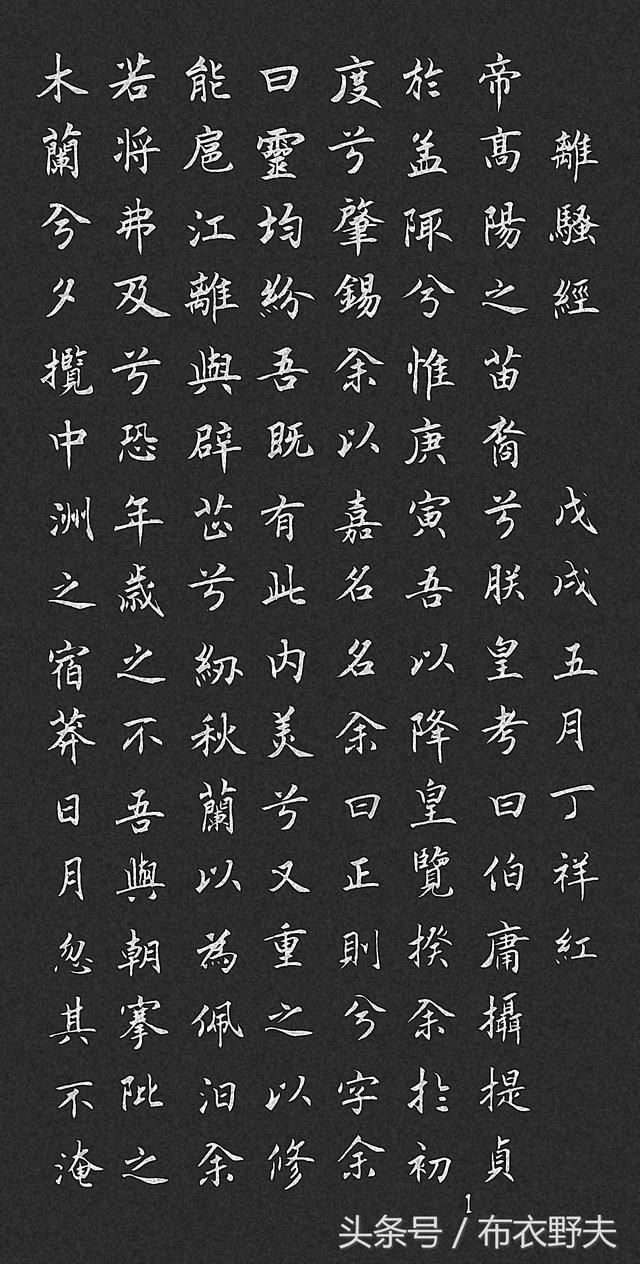 離騷經 戊戌五月丁祥紅
帝高陽之苗裔兮朕皇考曰伯庸攝提貞
於孟陬兮惟庚寅吾以降皇覽揆余於初
度兮肇錫余以嘉名名余曰正則兮字余
曰靈均紛吾既有此内美兮又重之以修
能扈江離與辟芷兮紉秋蘭以為佩汩余
若将弗及兮恐年歲之不吾與朝搴阰之
木蘭兮夕攬中洲之宿莽日月忽其不淹
1
头条号 / 布衣野夫